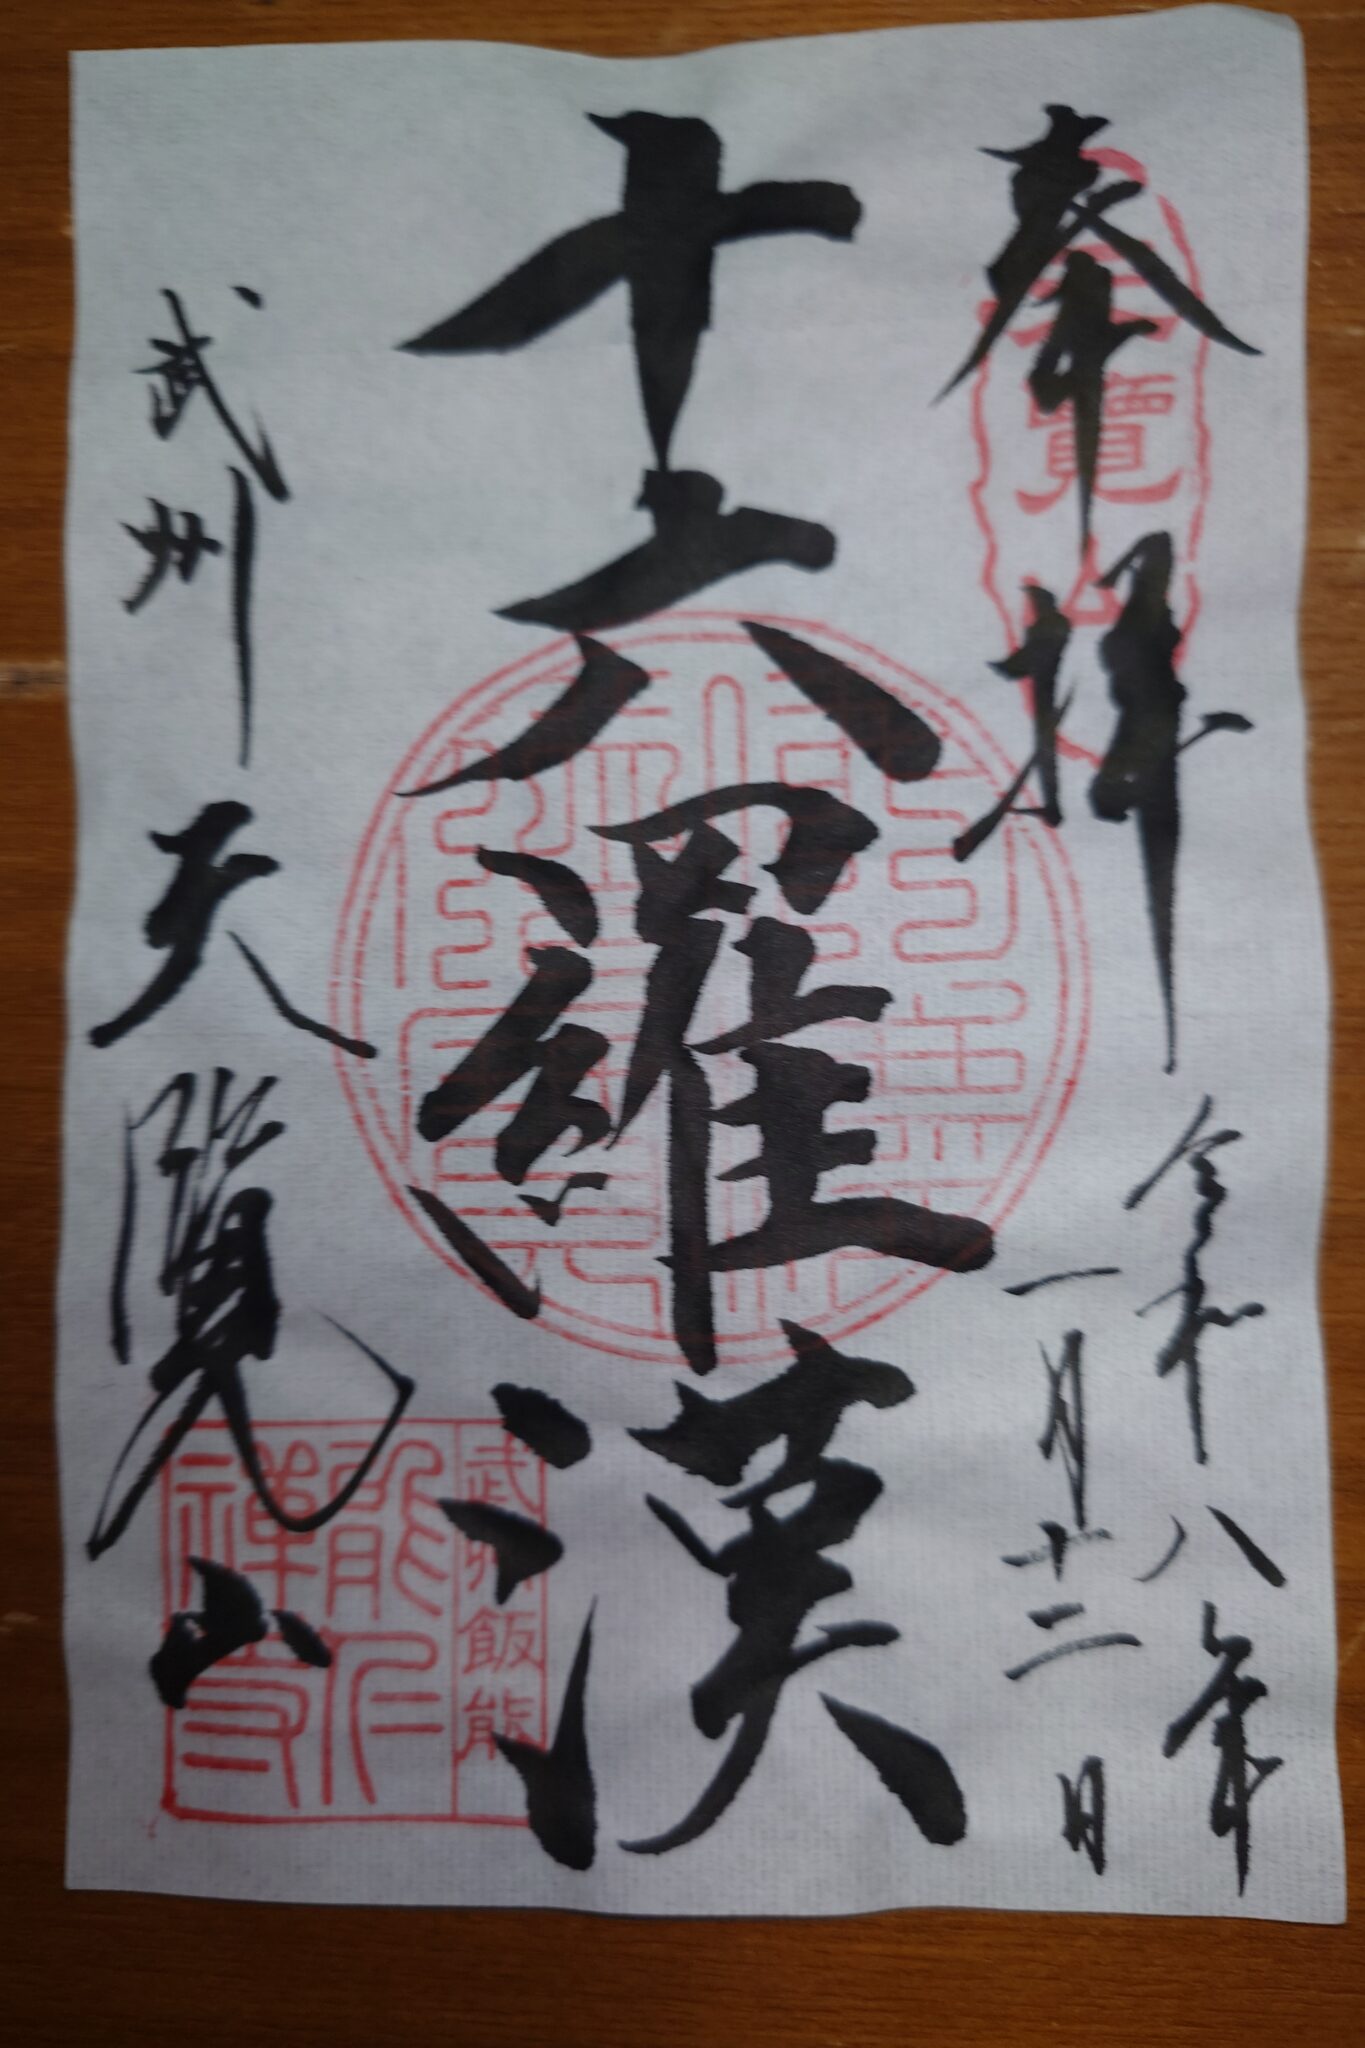 奉拝
天覽山
令和八年
一月十二日
十六羅漢
武州天覧山
武州飯能
能仁
禅寺